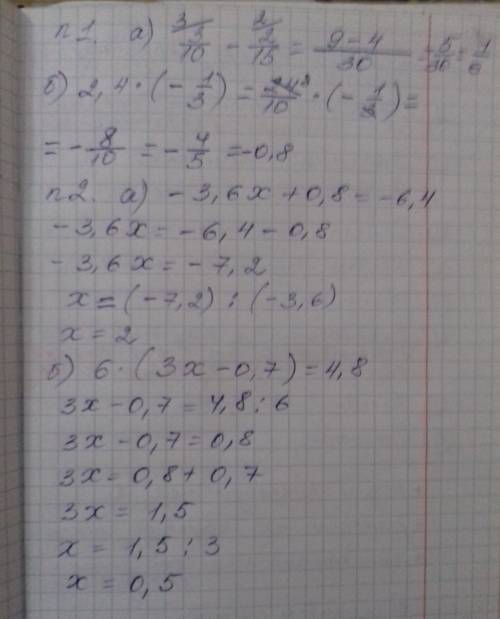 п1. а) 3/ 3/10 - 2/ 2/15 = 9-4/30 = 5/30 = 1/6
б) 2,4 · (-1/3) = 24 8/10 · (-1/3) =
= -8/10 = -4/5 = -0,8
п2. а) -3,6x + 0,8 = -6,4
-3,6x = -6,4 - 0,8
-3,6x = -7,2
x = (-7,2) : (-3,6)
x = 2
б) 6 · (3x - 0,7) = 4,8
3x - 0,7 = 4,8 : 6
3x - 0,7 = 0,8
3x = 0,8 + 0,7
3x = 1,5
x = 1,5 : 3
x = 0,5